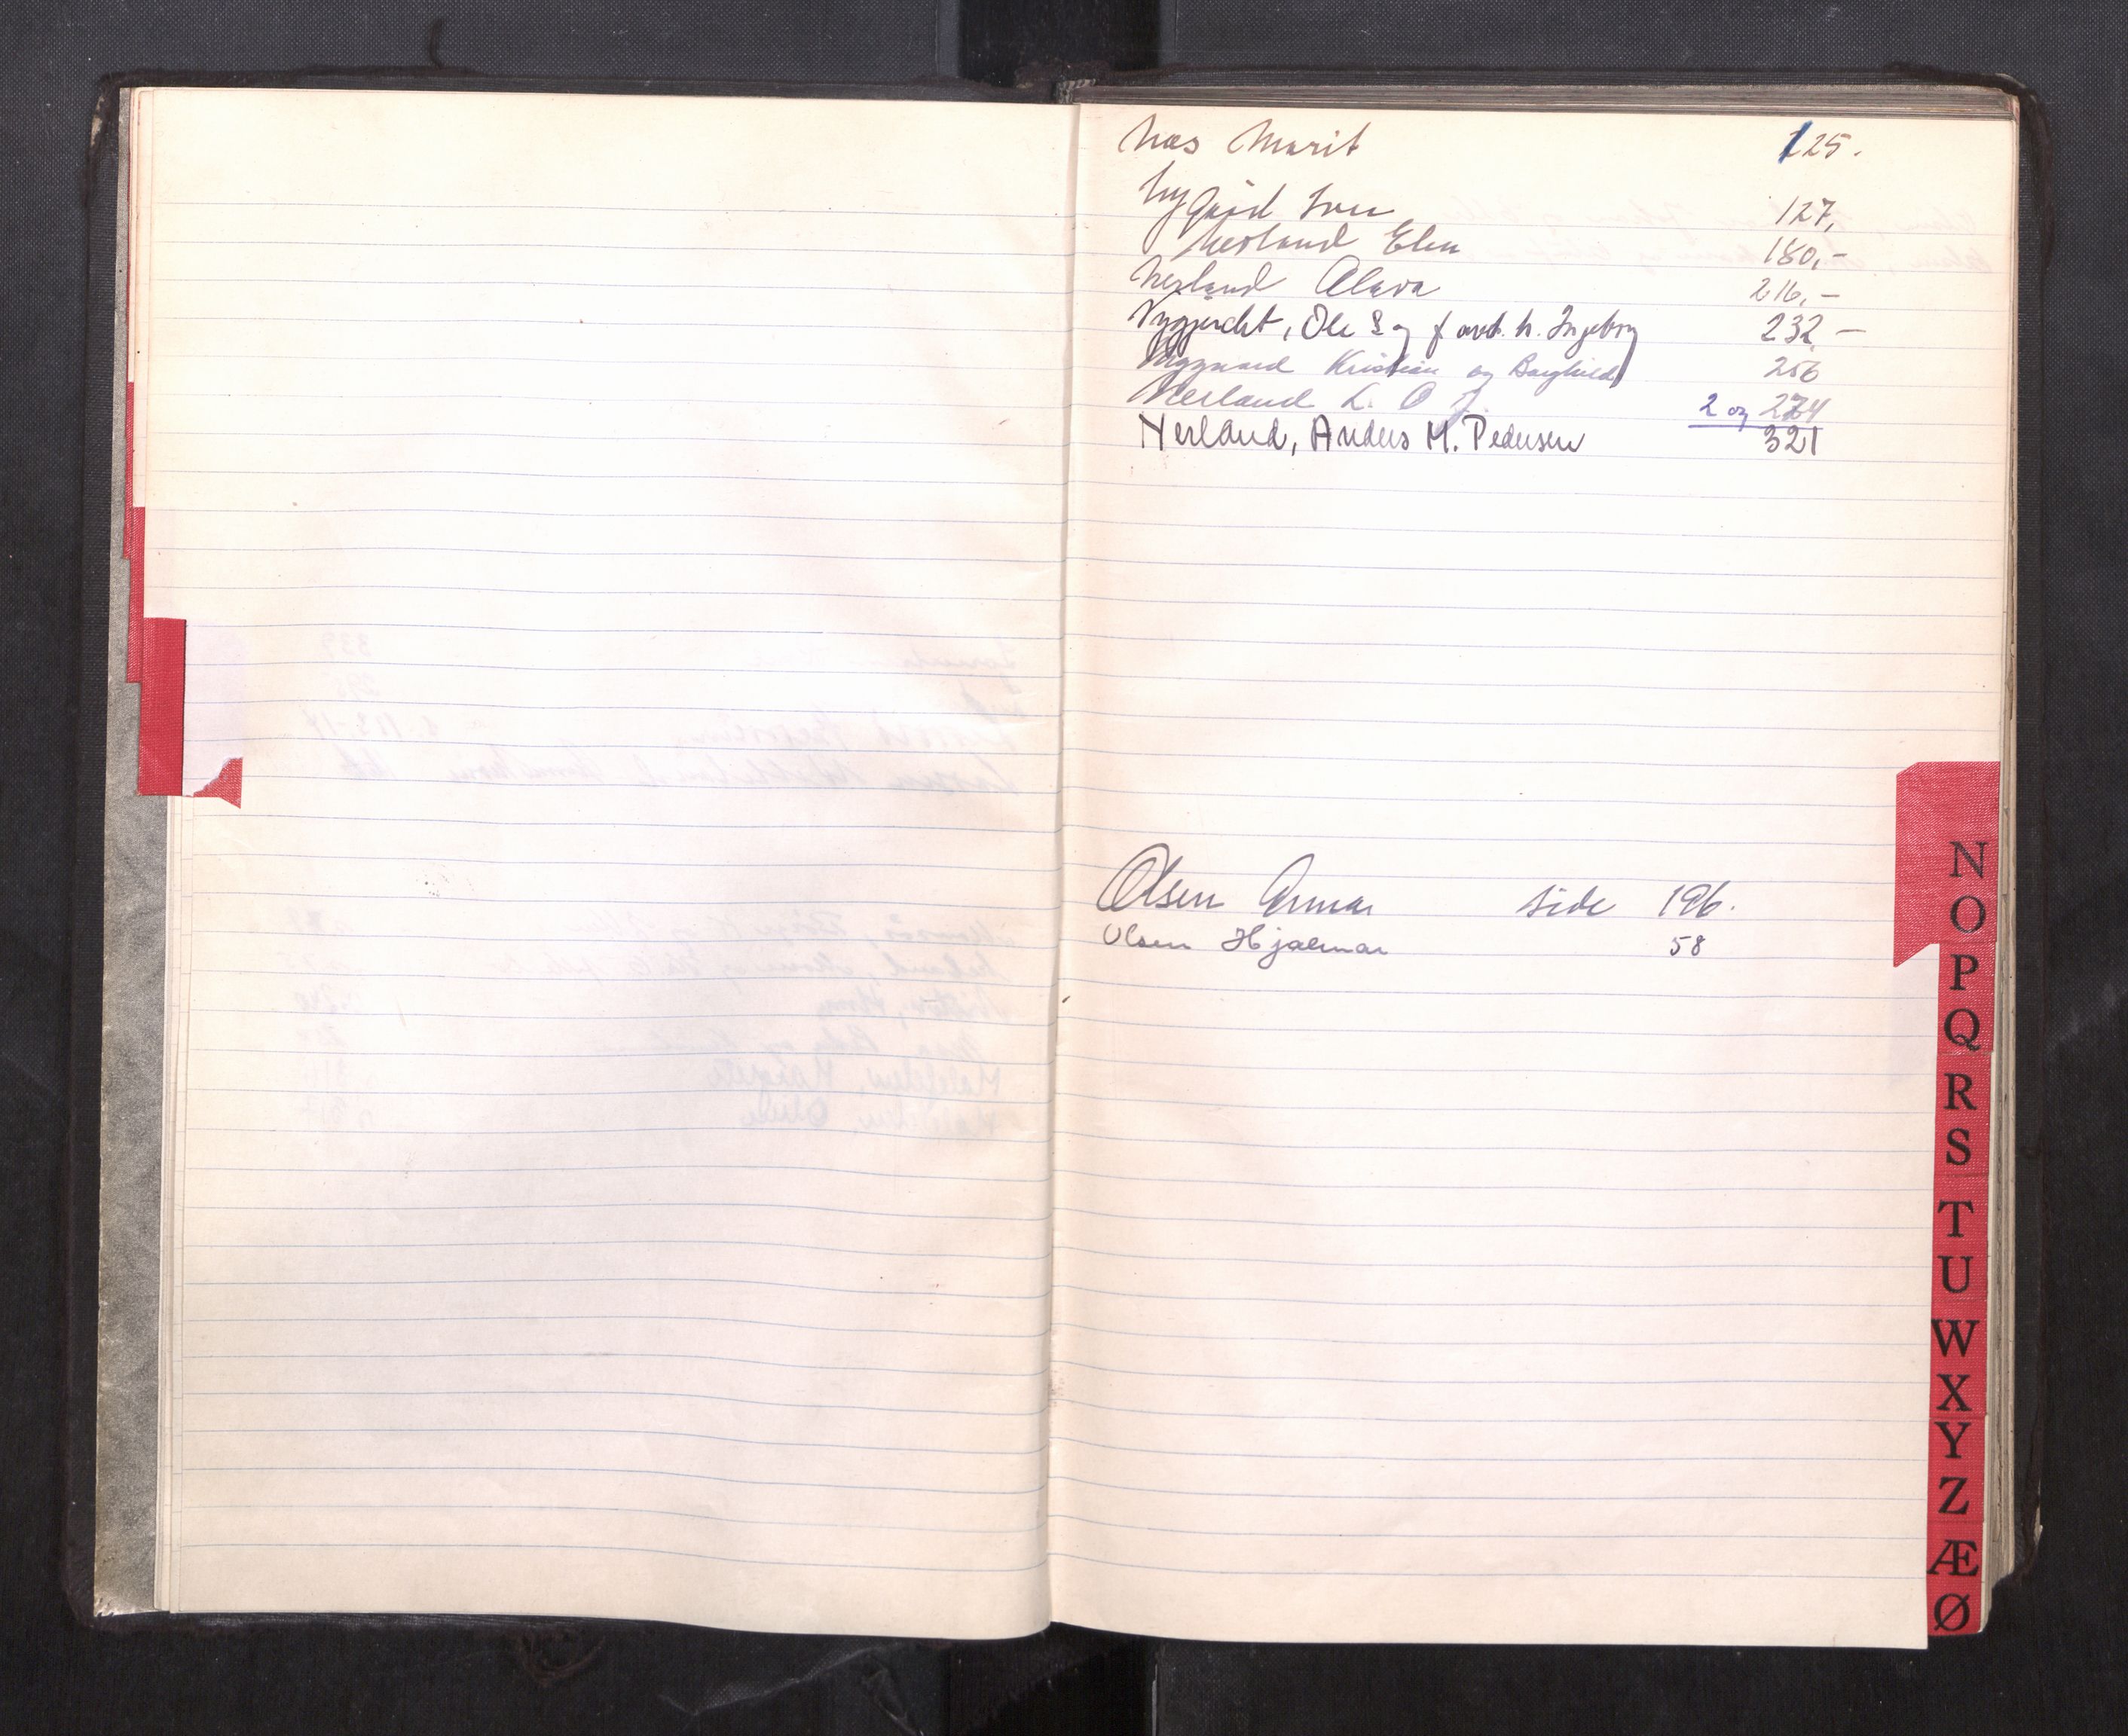 Næs Marit 125.
Nygård Iver 127,
Nerland Elen 180,-
Nerland Olava 216,-
Nygjerdet, Ole og Ingeborg 232 -
Nygaard Kristian og Borghild 256
Nerland L. O. 2 og 274
Nerland, Anders M. Pedersen 321
Olsen Gunnar side 196.
Olsen Hjalmar 58
N
O
P
Q
R
S
T
U
W
X
Y
Z
Æ
Ø